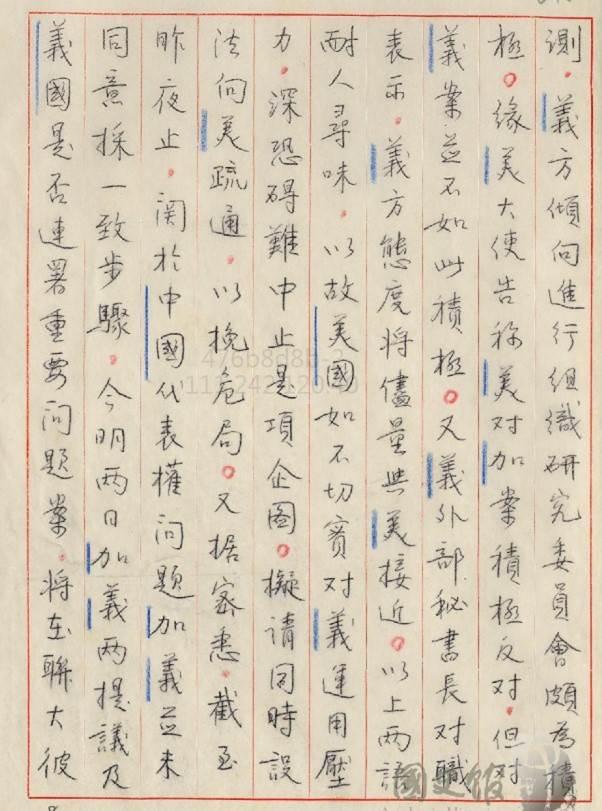 測。義方傾向進行組織研究委員會頗為積
極。緣美大使告稱美對加案積極反對。但對
義案並不如此積極。又義外部秘書長對職
表示。義方態度將儘量與美接近。以上兩語
耐人尋味。以故美國如不切實對義運用壓
力。深恐碍難中止是項企圖。擬請同時設
法向美疏通。以挽危局。又据密悉。截至
昨夜止。関於中國代表權问題加義並未
同意採一致步驟。今明两日加義两提議及
義國是否連署重要问題案。将在聯大彼
476b8d8b-2
國史館